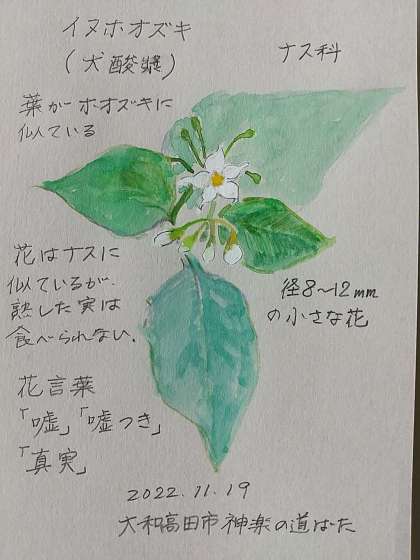 イヌホオズキ
(犬酸漿)
ナス科
葉がホオズキに
似ている
花はナスに
似ているが、
熟した実は
食べられない.
径8〜12mm
の小さな花
花言葉
「嘘」「嘘つき」
「真実」
2022.11.19
大和高田市神楽の道ばた